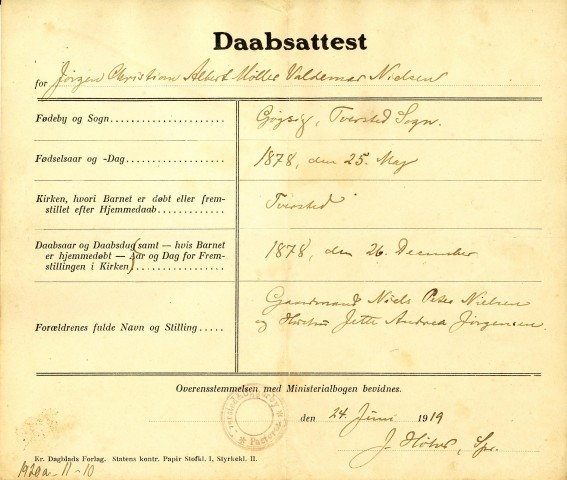 Daabsattest
for Jørgen Christian Albert Møller Valdemar Nielsen
Fødeby og Sogn
Tversted Sogn.
Fødselsaar og -Dag
1878, den 25. Maj
Kirken, hvori Barnet er døbt eller frem-
stillet efter Hjemmedaab
Tversted
Daabsaar og Daabsdag (samt — hvis Barnet
er hjemmedøbt — Aar og Dag for Frem-
stillingen i Kirken)
1878, den 26. December
Forældrenes fulde Navn og Stilling
Gaardmand Niels Peter Nielsen
og Hustru Jette Andrea Jørgensen.
Overensstemmelsen med Ministerialbogen bevidnes.
den 24. Juni 1919
J.
Kr. Dagblads Forlag. Statens kontr. Papir Stofkl. I, Styrkekl. II.
1920a-11-10